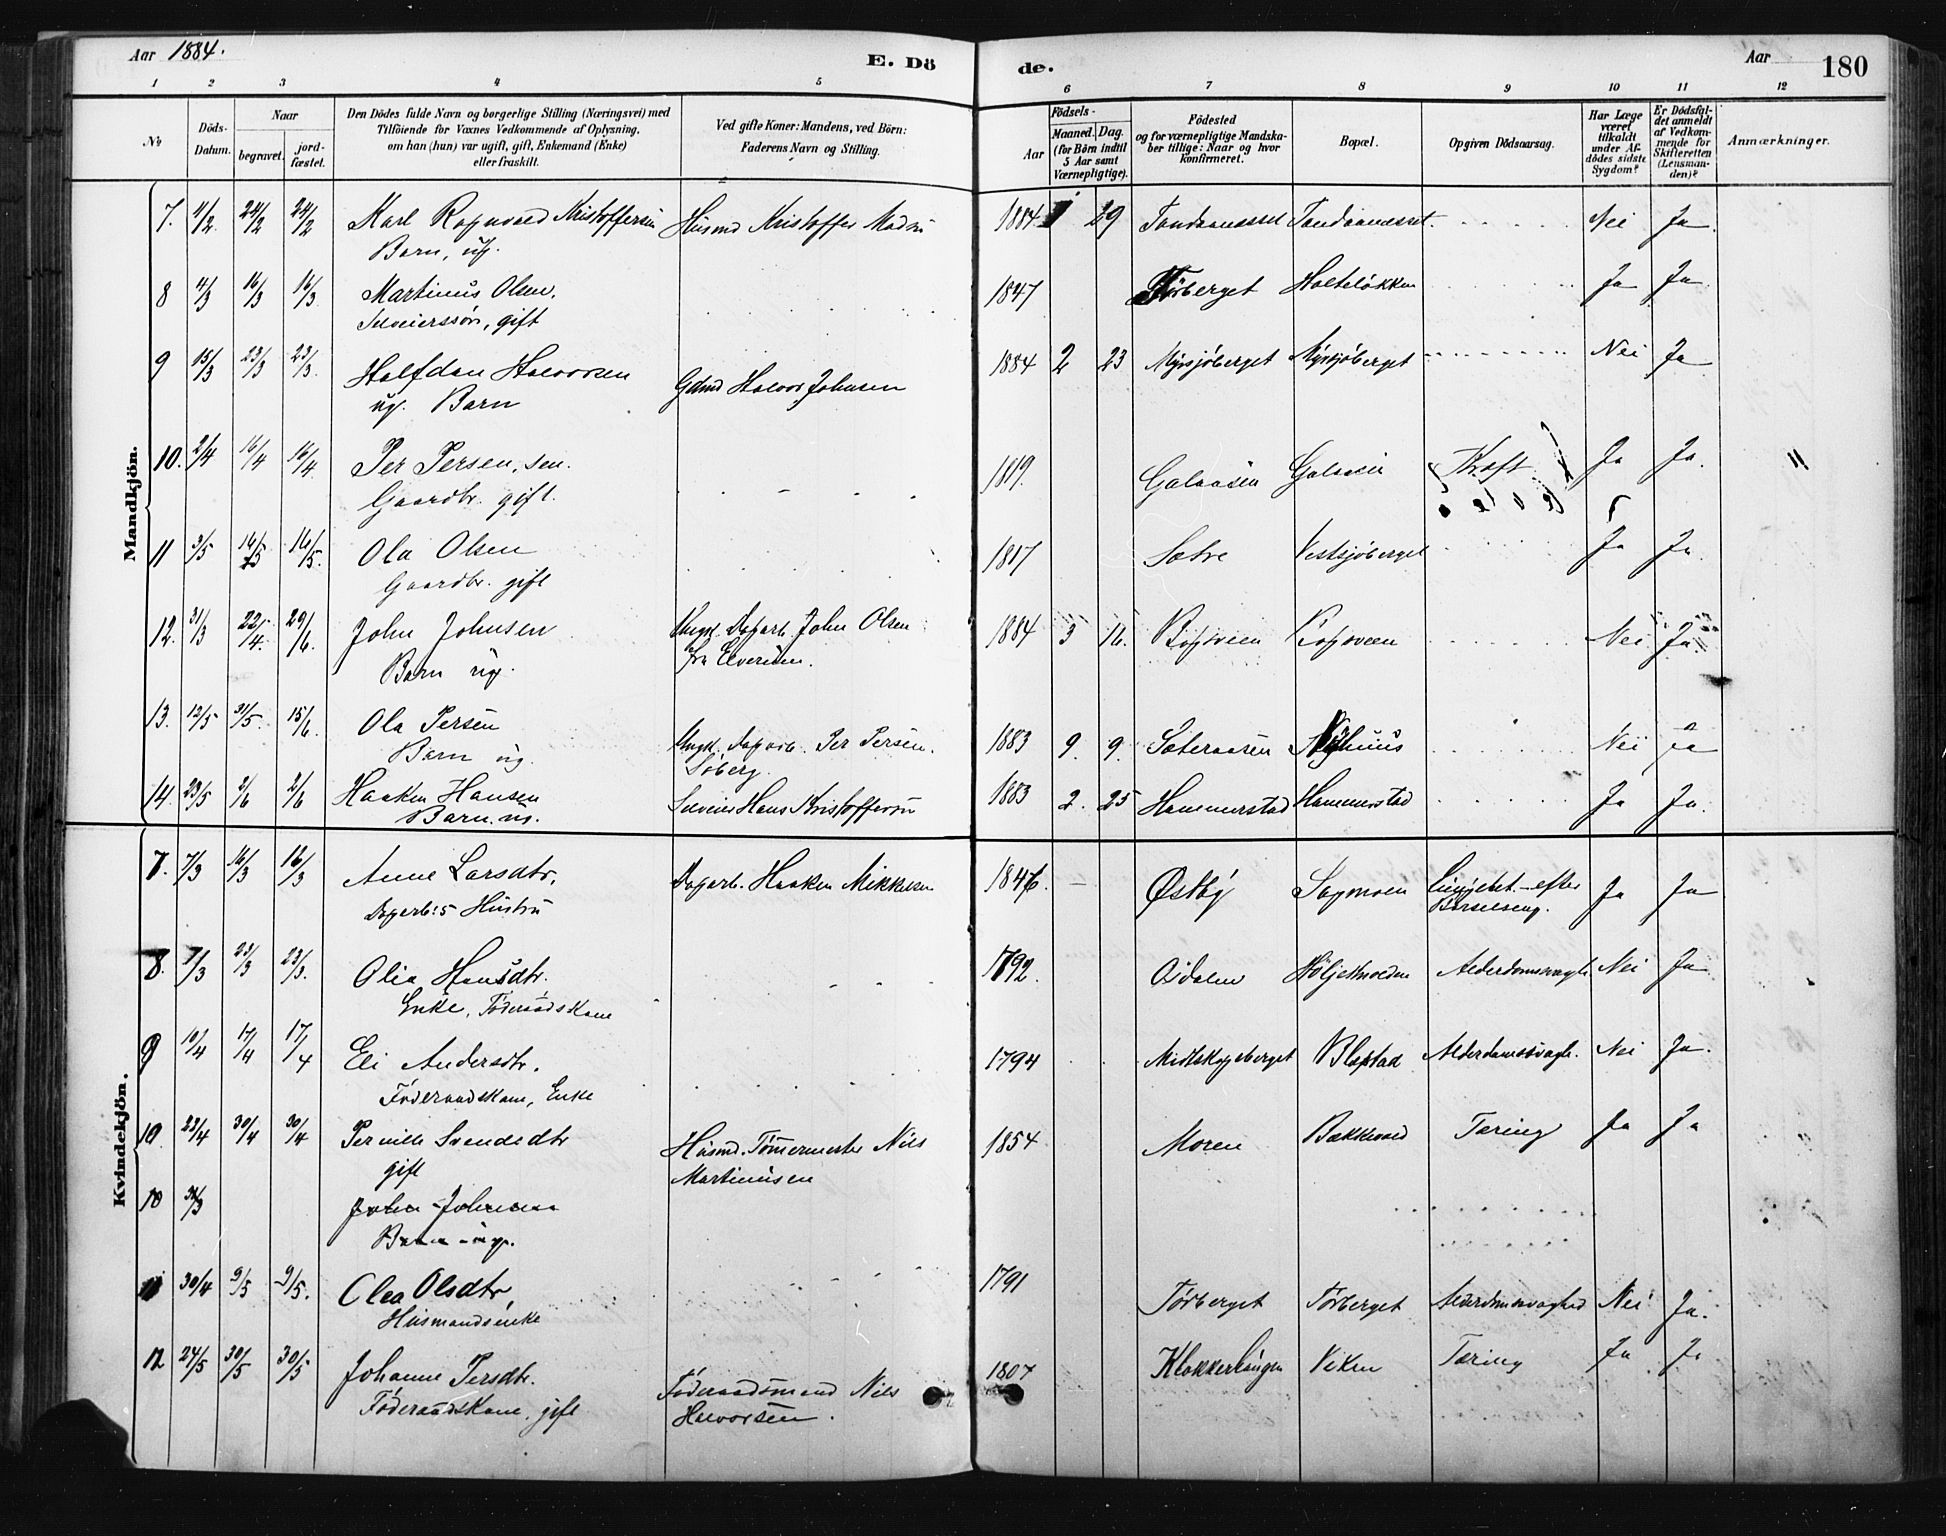 Aar 1884.
E. Dö
de.
Aar
180
1 2 3 4 5 6 7 8 9 10 11 12
No
Döds-
Datum.
Naar
begravet.
jord-
fæstet.
Den Dödes fulde Navn og borgerlige Stilling (Næringsvei) med
Tilföiende for Voxnes Vedkommende af Oplysning,
om han (hun) var ugift, gift, Enkemand (Enke)
eller fraskilt.
Ved gifte Koner: Mandens, ved Börn:
Faderens Navn og Stilling.
Födsels-
Aar
Maaned. Dag.
(for Börn indtil
5 Aar samt
Værnepligtige).
Födested
og for værnepligtige Mandska-
ber tillige: Naar og hvor
konfirmeret.
Bopæl.
Opgiven Dödsaarsag.
Har Læge
været
tilkaldt
under Af-
dödes sidste
Sygdom?
Er Dödsfal-
det anmeldt
af Vedkom-
mende for
Skifteretten
(Lensman-
den)?
Anmærkninger.
Mandkjön.
7. 24/2 24/2 Karl Ragnvald Kristoffersen Husmd Kristoffer Madsn 1884 1 29 Nei Ja
Barn, ug.
8 4/3 16/3 16/3 Martinus Olsen. 1847 Törberget Holtelökken Ja Ja
Selveierssön, gift
9 15/3 23/3 23/3 Halfdan Halvorsen Gdmd Halvor Johnsen 1884 2 23 Myrsjöberget Myrsjöberget Nei Ja
ug. Barn
10. 2/4 16/4 16/4 Per Persen, sen. 1819. Galaasen Galaasen Kræft Ja Ja. 11
Gaardbr. gift.
11 3/5 16/5 16/5. Ola Olsen 1817 Sætre Vestsjöberget Ja Ja
Gaardbr. gift
12. 31/3 22/4. 29/6. John Johnsen Ungk. Dagarb. John Olsen 1884 3 16. Nei Ja.
Barn ug. fra Elverum.
13. 12/5 31/5. 15/6. Ola Persen Ungk. Dagarb. Per Persen. 1883 9. 9. Sæteraasen Nyhuus Nei Ja
Barn ug. Söberg
14. 23/5 2/6 2/6 Haaken Hansen Selveier Hans Kristoffersen 1883 2. 25 Hammerstad Hammerstad Ja Ja.
Barn. ug.
Kvindekjön.
7. 7/3 16/3 16/3 Anne Larsdtr. Dagarb. Haaken Mikkelsen 1846. Østby Sagmoen efter Ja Ja
Dagarb:s Hustru Barselseng.
8. 7/3 23/3 23/3. Olea Hansdtr. 1792. Osdalen Alderdomssvagh. Nei Ja
Enke, Föderaadskone
9 10/4 17/4 17/4 Eli Andersdtr. 1794 Midtskogsberget Alderdomssvagh. Nei Ja.
Föderaadskone, Enke
10 23/4 30/4 30/4 Pernille Svendsdtr Husmd. Tömmermester Nils 1854 Moren Bakkevold Tæring Ja Ja
gift Martinusen
10 31/3 John Johnsen
Barn ug.
11 30/4 9/5 9/5. Olea Olsdtr, 1791 Törberget Törberget Alderdomssvaghed Nei Ja.
Husmandsenke
12 24/5 30/5 30/5 Johanne Persdtr. Föderaadsmand Nils 1807 Viken Tæring Ja Ja
Föderaadskone, gift Halvorsen.